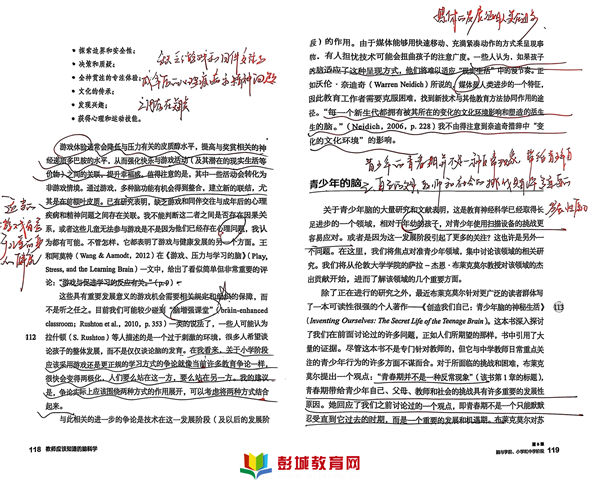 • 探索边界和安全性；
• 决策和质疑；
• 全神贯注的专注体验；
• 文化的传承；
• 发现兴趣；
• 获得心理和运动技能。
游戏体验通常会降低与压力有关的皮质醇水平，提高与奖赏相关的神
经递质多巴胺的水平，从而强化快乐与游戏活动（及其潜在的现实生活等
价物）之间的联系，提升幸福感。值得注意的是，其中一些活动会转化为
非游戏情境。通过游戏，多种脑功能有机会得到整合，建立新的联结，尤
其是在前额叶皮层。已有研究表明，缺乏游戏和同伴交往与成年后的心理
疾病和精神问题之间存在关联。我不能判断这二者之间是否存在因果关
系，或者这些儿童无法参与游戏是不是因为他们已经存在心理问题，我认
为都有可能。不管怎样，它都表明了游戏与健康发展的另一个方面。王
和阿莫特（Wang & Aamodt, 2012）在《游戏、压力与学习的脑》（Play,
Stress, and the Learning Brain）一文中，给出了看似简单但非常重要的评
论：“游戏与促进学习的反应有关。”（p.9）
这些具有重要发展意义的游戏机会需要相关规定和组织的保障，而
不是听之任之。目前我们可能较少碰到“脑增强课堂”（brain-enhanced
classroom; Rushton et al., 2010, p.353）一类的说法了，一些人可能认为
拉什顿（S. Rushton）等人描述的是一个过于刺激的环境，很多人希望谈
论孩子的整体发展，而不是仅仅谈论脑的发育。在我看来，关于小学阶段
应该采用游戏还是更正规的学习方式的争论就像当前许多教育争论一样，
很快会变得两极化，人们要么站在这一方，要么站在另一方。我的建议
是，争论实际上应该围绕两种方式的作用展开，可以考虑将两种方式结合
起来。
与此相关的进一步的争论是技术在这一发展阶段（及以后的发展阶
112
118 教师应该知道的脑科学
反）的作用。由于媒体能够用快速移动、充满紧凑动作的方式来呈现事
物，有人担忧技术可能会扭曲孩子的注意广度。一些人认为，如果孩子
的脑适应了这种呈现方式，他们将难以适应“现实生活”中的慢节奏。正
如沃伦·奈迪奇（Warren Neidich）所说的，媒体是人类进步的一个特征，
因此教育工作者需要克服困难，找到新技术与其他教育方法协同作用的途
径。“每一个新生代都拥有被其所在的变化的文化环境影响和塑造的活生
生的脑。”（Neidich, 2006, p.228）我不由得注意到奈迪奇措辞中“变
化的文化环境”的影响。
青少年的脑
关于青少年脑的大量研究和文献表明，这是教育神经科学已经取得长
足进步的一个领域，相对于年幼的孩子，对青少年使用扫描设备的挑战更
容易应对。或者是因为这一发展阶段引起了更多的关注？这也许是另外一
个问题。在这里，我们将焦点对准青少年领域，集中讨论该领域的相关研
究。我们将从伦敦大学学院的萨拉-杰恩·布莱克莫尔教授对该领域的杰
出贡献开始，进而了解该领域的几个重要方面。
除了正在进行的研究之外，最近布莱克莫尔针对更广泛的读者群体写
了一本可读性很强的个人著作——《创造我们自己：青少年脑的神秘生活》
(Inventing Ourselves: The Secret Life of the Teenage Brain)。这本书深入探讨
了我们在前面讨论过的许多问题，正如人们所期望的那样，书中引用了大
量的证据。尽管这本书不是专门针对教师的，但它与中学教师日常重点关
注的青少年行为的许多方面不谋而合。对于所面临的挑战和困难，布莱克
莫尔提出一个观点：“青春期并不是一种反常现象”（该书第1章的标题），
青春期带给青少年自己、父母、教师和社会的挑战具有许多重要的发展性
原因。她回应了我们之前讨论过的一个观点，即青春期不是一个只能默默
忍受直到它过去的时期，而是一个重要的发展和机遇期。布莱克莫尔对苏
113
第9章
脑与学前、小学和中学阶段 119
彭城教育网